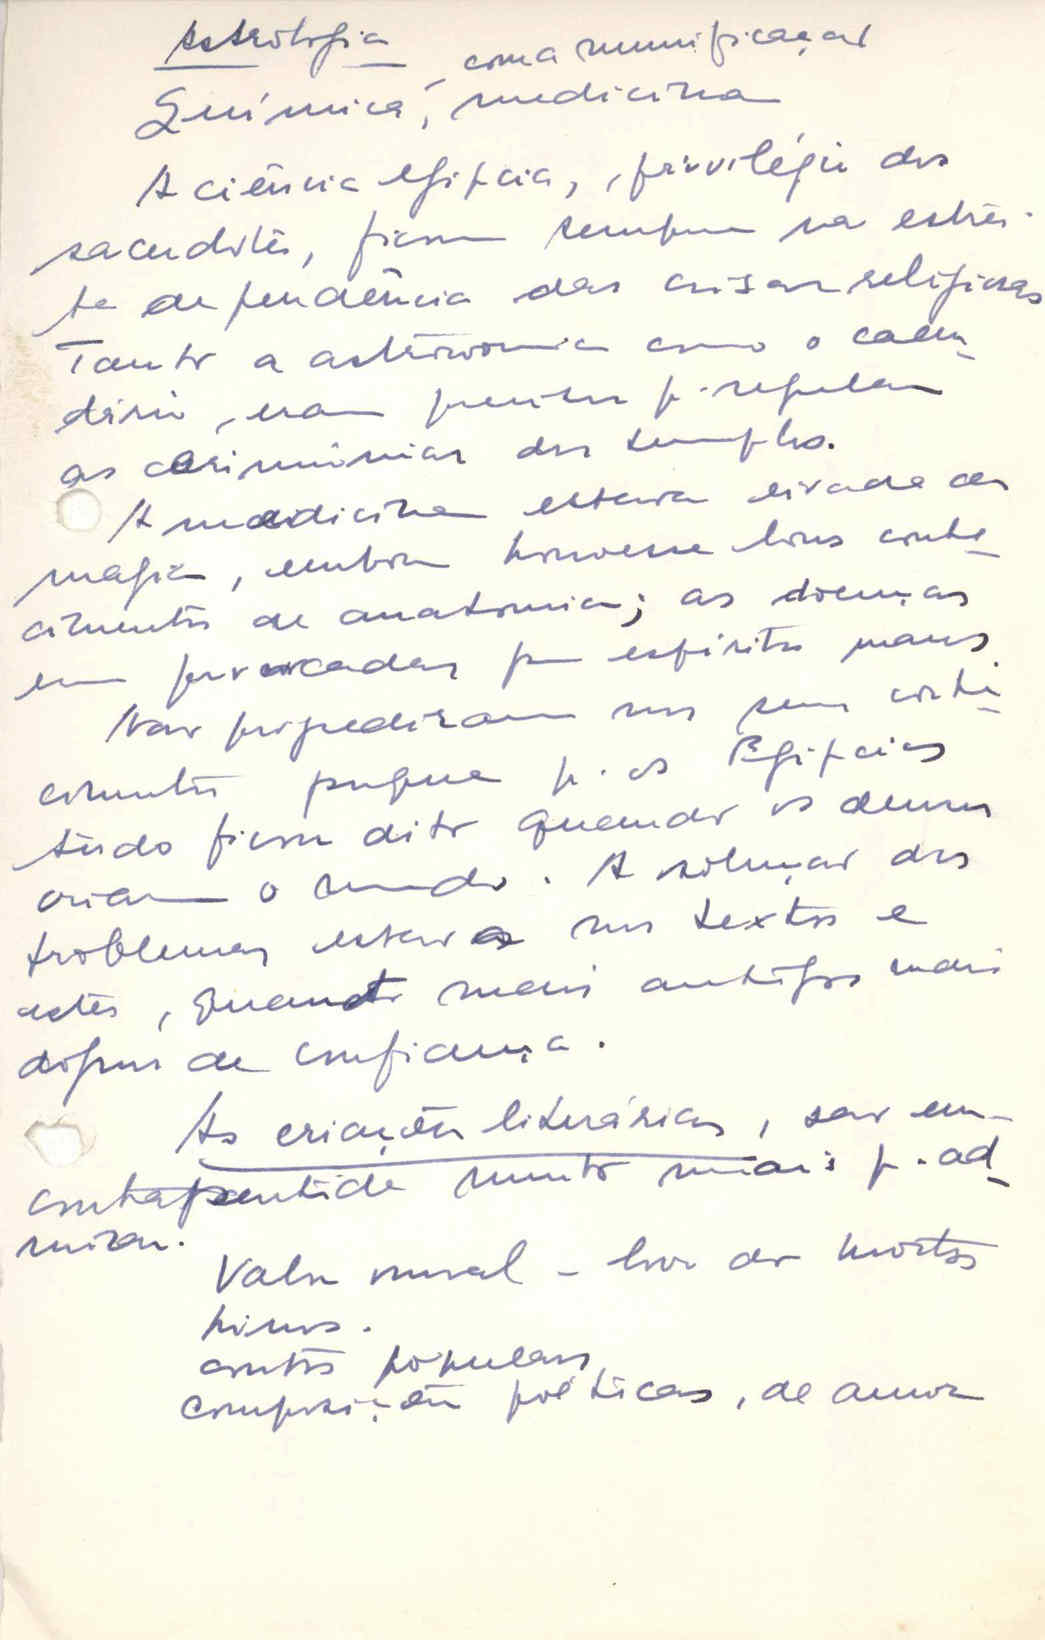 Astrologia
com a mumificação
Química, medicina
A ciência egípcia, privilégio dos
sacerdotes, ficou sempre na estrei-
ta dependência das coisas religiosas
Tanto a astronomia como o calen-
dário, eram precisos p. regular
as cerimónias dos templos.
A medicina estava eivada de
magia, embora houvesse bons conhe-
cimentos de anatomia; as doenças
eram provocadas por espíritos maus.
Não progrediram nos seus conhe-
cimentos porque p. os Egípcios
tudo ficou dito quando os deuses
criaram o mundo. A solução dos
problemas estava nos textos e
estes, quanto mais antigos mais
dignos de confiança.
As criações literárias, são em
contrapartida muito mais p. ad-
mirar.
Valor moral - livro dos mortos
hinos.
contos populares
composições poéticas, de amor